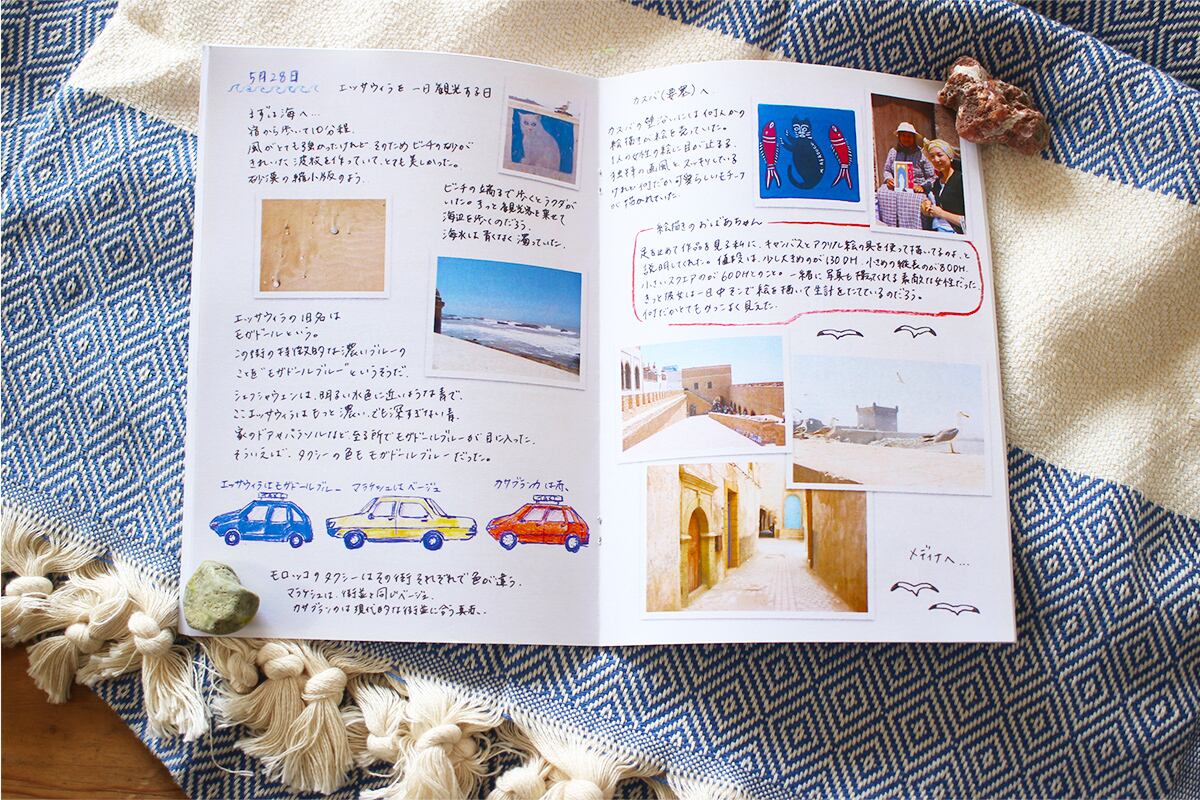 5月28日
エッサウィラを一日観光する日
まずは海へ…
宿から歩いて10分程。
風がとても強かったけれど そのためビーチの砂が
きれいな波紋を作っていて、とても美しかった。
砂漠の縮小版のよう。
ビーチの端まで歩くとラクダが
いた。きっと観光客を乗せて
海辺を歩くのだろう。
海水は青くなく濁っていた。
エッサウィラの旧名は
モガドールという。
この街の特徴的な濃いブルーの
ことを"モガドールブルー"というそうだ。
シェフシャウエンは、明るい水色に近いような青で、
ここエッサウィラはもっと濃い、でも深すぎない青。
家のドアやパラソルなど、至る所でモガドールブルーが目に入った。
そういえば、タクシーの色もモガドールブルーだった。
エッサウィラはモガドールブルー
マラケシュはベージュ
カサブランカは赤、
モロッコのタクシーはその街それぞれで色が違う。
マラケシュは、街並と同じベージュ。
カサブランカは現代的な街並に合う真赤。
カスバ(要塞)へ…
カスバの城沿いには何人かの
絵描きが絵を売っていた。
1人の女性の絵に目が止まる。
独特の画風と、スッキリしている
けれど何だか可愛らしいモチーフ
が描かれていた。
絵描きのおばあちゃん
足を止めて作品を見る私に、キャンバスとアクリル絵の具を使って描いてるのよ、と
説明してくれた。値段は、少し大きめのが130DH、小さめの縦長のが80DH、
小さいスクエアのが60DHとのこと。一緒に写真も撮ってくれる素敵な女性だった。
きっと彼女は一日中そこで絵を描いて生計をたてているのだろう。
何だかとてもかっこよく見えた。
メディナへ…